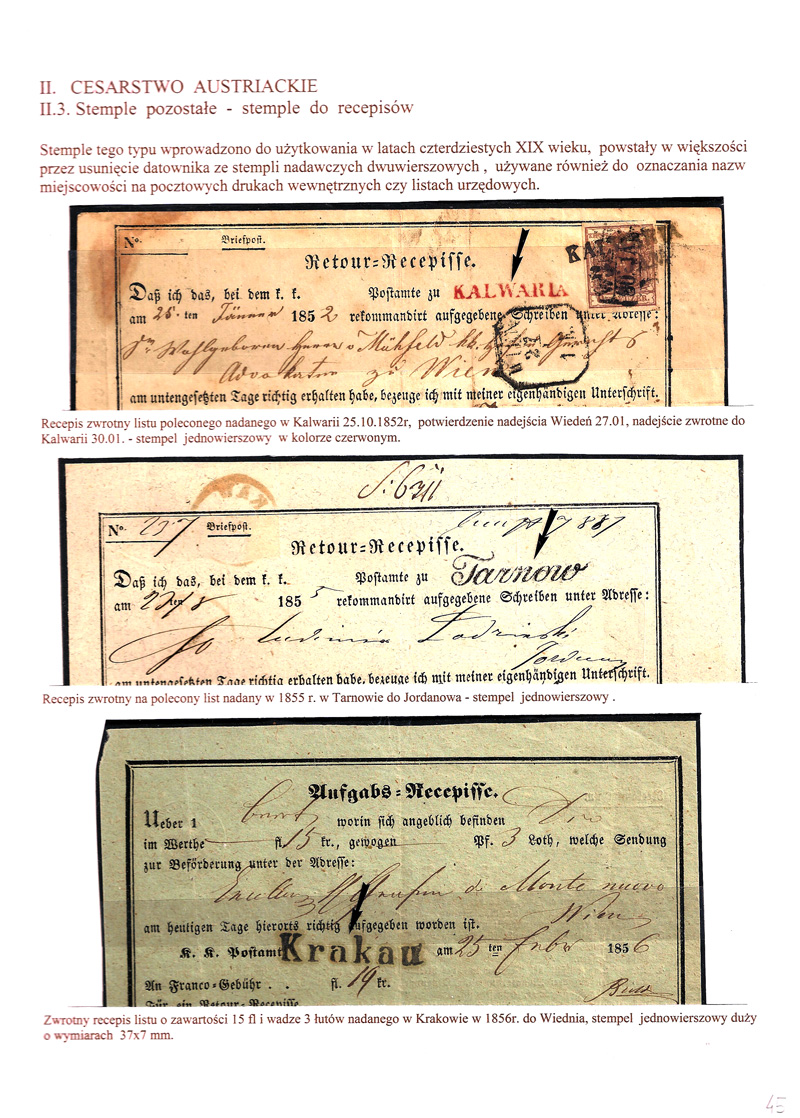 II. CESARSTWO AUSTRIACKIE
II.3. Stemple pozostałe - stemple do recepisów
Stemple tego typu wprowadzono do użytkowania w latach czterdziestych XIX wieku, powstały w większości
przez usunięcie datownika ze stempli nadawczych dwuwierszowych , używane również do oznaczania nazw
miejscowości na pocztowych drukach wewnętrznych czy listach urzędowych.
No. Briefpost.
Retour=Recepisse.
Daß ich das, bei dem k. k. Postamte zu KALWARIA
am 25. ten Jänner 1852 rekommandirt aufgegebene Schreiben unter Adresse:
Advokaten zu Wien
am untengesetzten Tage richtig erhalten habe, bezeuge ich mit meiner eigenhändigen Unterschrift.
Recepis zwrotny listu poleconego nadanego w Kalwarii 25.10.1852r, potwierdzenie nadejścia Wiedeń 27.01, nadejście zwrotne do
Kalwarii 30.01. - stempel jednowierszowy w kolorze czerwonym.
No. 237 Briefpost.
Retour=Recepisse.
Daß ich das, bei dem k. k. Postamte zu Tarnow
am 1855 rekommandirt aufgegebene Schreiben unter Adresse:
am untengesetzten Tage richtig erhalten habe, bezeuge ich mit meiner eigenhändigen Unterschrift.
Recepis zwrotny na polecony list nadany w 1855 r. w Tarnowie do Jordanowa - stempel jednowierszowy .
Aufgabs=Recepisse.
Ueber 1 worin sich angeblich befinden
im Werthe fl. 15 kr., gewogen Pf. 3 Loth, welche Sendung
zur Beförderung unter der Adresse:
de Monte nuovo
Wien
am heutigen Tage hierorts richtig aufgegeben worden ist.
K. K. Postamt Krakau am 25 ten 1856
An Franco=Gebühr . . fl. 19 kr.
Für ein Retour=Recepisse
Zwrotny recepis listu o zawartości 15 fl i wadze 3 łutów nadanego w Krakowie w 1856r. do Wiednia, stempel jednowierszowy duży
o wymiarach 37x7 mm.